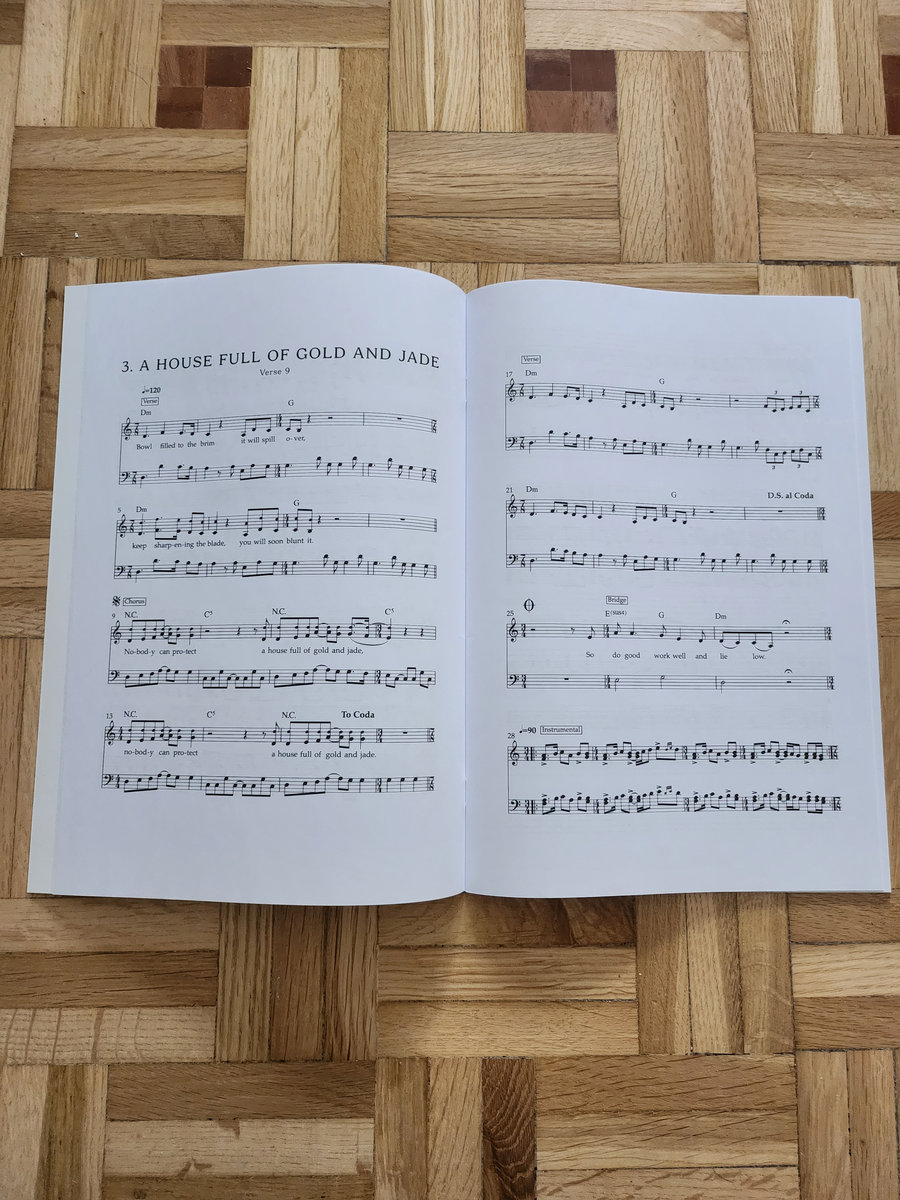 3. A HOUSE FULL OF GOLD AND JADE
Verse 9
♩=120
Verse
Dm G
Bowl filled to the brim it will spill o-ver,
5 Dm G
keep sharp-en-ing the blade, you will soon blunt it.
Chorus
9 N.C. C5 N.C. C5
No-bod-y can pro-tect a house full of gold and jade,
13 N.C. C5 N.C. To Coda
no-bod-y can pro-tect a house full of gold and jade.
Verse
17 Dm G
3 3
3 3
21 Dm G D.S. al Coda
25 Bridge
E(sus4) G Dm
So do good work well and lie low.
♩=90 Instrumental
28